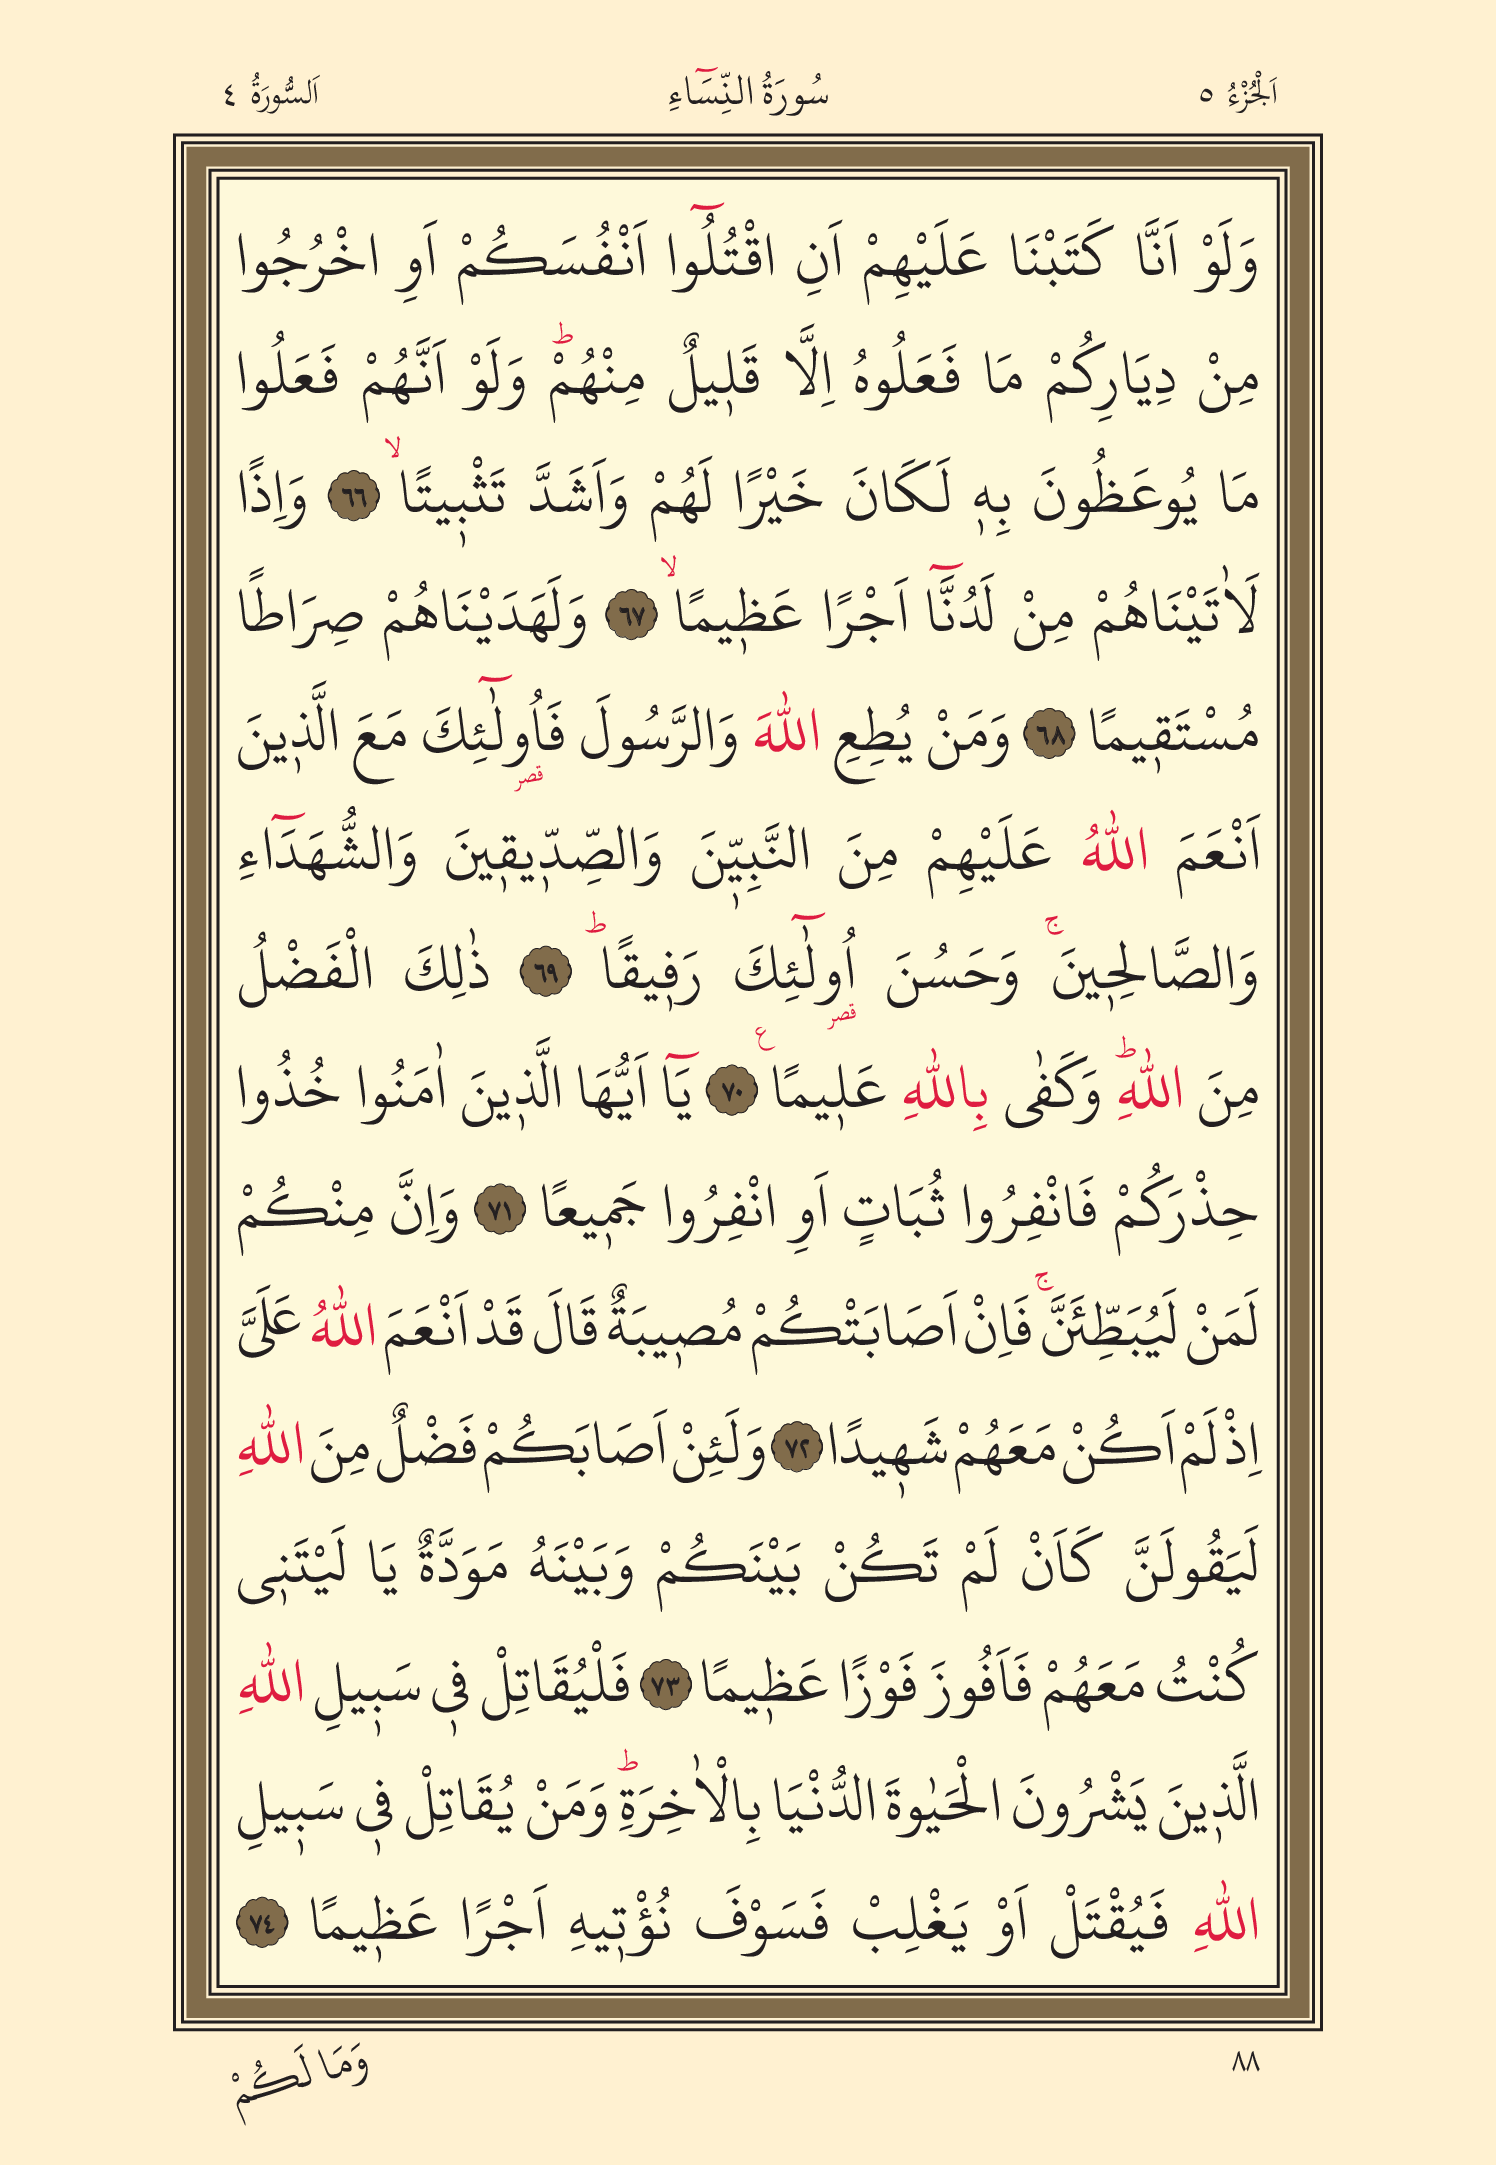 اَلْجُزْءُ ٥
سُورَةُ النِّسَٓاءِ
اَلسُّورَةُ ٤
وَلَوْ اَنَّا كَتَبْنَا عَلَيْهِمْ اَنِ اقْتُلُٓوا اَنْفُسَكُمْ اَوِ اخْرُجُوا
مِنْ دِيَارِكُمْ مَا فَعَلُوهُ اِلَّا قَل۪يلٌ مِنْهُمْۜ وَلَوْ اَنَّهُمْ فَعَلُوا
مَا يُوعَظُونَ بِه۪ لَكَانَ خَيْرًا لَهُمْ وَاَشَدَّ تَثْب۪يتًاۙ ٦٦ وَاِذًا
لَاٰتَيْنَاهُمْ مِنْ لَدُنَّٓا اَجْرًا عَظ۪يمًاۙ ٦٧ وَلَهَدَيْنَاهُمْ صِرَاطًا
مُسْتَق۪يمًا ٦٨ وَمَنْ يُطِعِ اللّٰهَ وَالرَّسُولَ فَاُو۬لٰٓئِكَ مَعَ الَّذ۪ينَ
قصر
اَنْعَمَ اللّٰهُ عَلَيْهِمْ مِنَ النَّبِيّ۪نَ وَالصِّدّ۪يق۪ينَ وَالشُّهَدَٓاءِ
وَالصَّالِح۪ينَۚ وَحَسُنَ اُو۬لٰٓئِكَ رَف۪يقًاۜ ٦٩ ذٰلِكَ الْفَضْلُ
قصر
مِنَ اللّٰهِۜ وَكَفٰى بِاللّٰهِ عَل۪يمًا ع ٧٠ يَٓا اَيُّهَا الَّذ۪ينَ اٰمَنُوا خُذُوا
حِذْرَكُمْ فَانْفِرُوا ثُبَاتٍ اَوِ انْفِرُوا جَم۪يعًا ٧١ وَاِنَّ مِنْكُمْ
لَمَنْ لَيُبَطِّئَنَّۚ فَاِنْ اَصَابَتْكُمْ مُص۪يبَةٌ قَالَ قَدْ اَنْعَمَ اللّٰهُ عَلَيَّ
اِذْ لَمْ اَكُنْ مَعَهُمْ شَه۪يدًا ٧٢ وَلَئِنْ اَصَابَكُمْ فَضْلٌ مِنَ اللّٰهِ
لَيَقُولَنَّ كَاَنْ لَمْ تَكُنْ بَيْنَكُمْ وَبَيْنَهُ مَوَدَّةٌ يَا لَيْتَن۪ى
كُنْتُ مَعَهُمْ فَاَفُوزَ فَوْزًا عَظ۪يمًا ٧٣ فَلْيُقَاتِلْ ف۪ى سَب۪يلِ اللّٰهِ
الَّذ۪ينَ يَشْرُونَ الْحَيٰوةَ الدُّنْيَا بِالْاٰخِرَةِۜ وَمَنْ يُقَاتِلْ ف۪ى سَب۪يلِ
اللّٰهِ فَيُقْتَلْ اَوْ يَغْلِبْ فَسَوْفَ نُؤْت۪يهِ اَجْرًا عَظ۪يمًا ٧٤
٨٨
وَمَا لَكُمْ